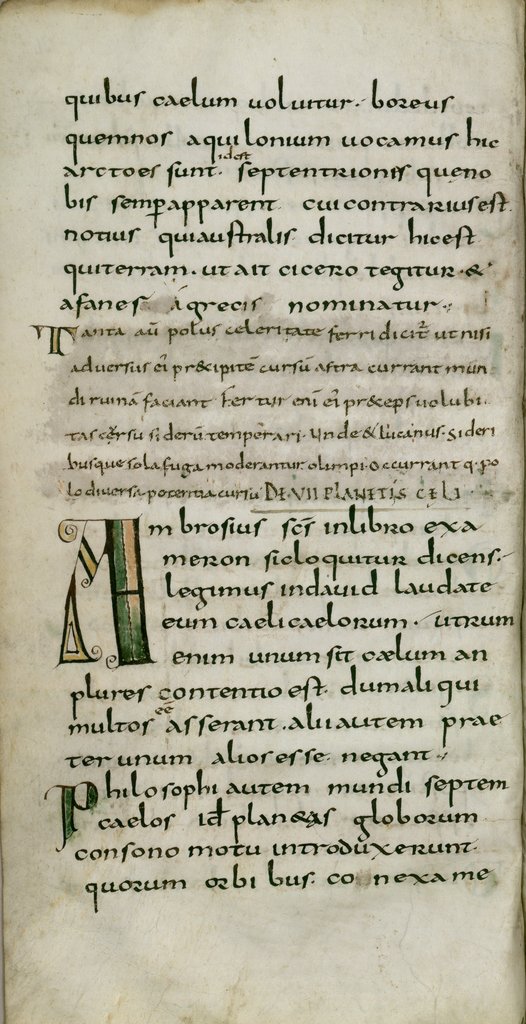 quibus caelum uoluitur. boreus
quemnos aquilonium uocamus hic
arctoes sunt. idest septentriones queno
bis semp apparent cui contrarius est.
notius quiaustralis dicitur hicest
quiterram. ut ait cicero tegitur. &
afanes agrecis nominatur.
Tanta au polus celeritate ferri dicit ut nisi
aduersus ei pr&cipite cursu astra currant mun
di ruina faciant Fertur eni ei pr&ceps uolubi
tas cersu sideru temperari. Unde & lucanus. Sideri
busque sola fuga moderantur olimpi. Occurrant q. po
lo diuersa potentia cursu DE VII PLANETIS CELI
Ambrosius scs inlibro exa
meron sicloquitur dicens.
legimus indauid laudate
eum caelicaelorum. utrum
enim unum sit caelum an
plures contentio est. dumaliqui
multos ee asserant. alii autem prae
ter unum alios esse negant.
Philosophi autem mundi septem
caelos id plan&as globorum
consono motu introduxerunt.
quorum orbibus. conexa me